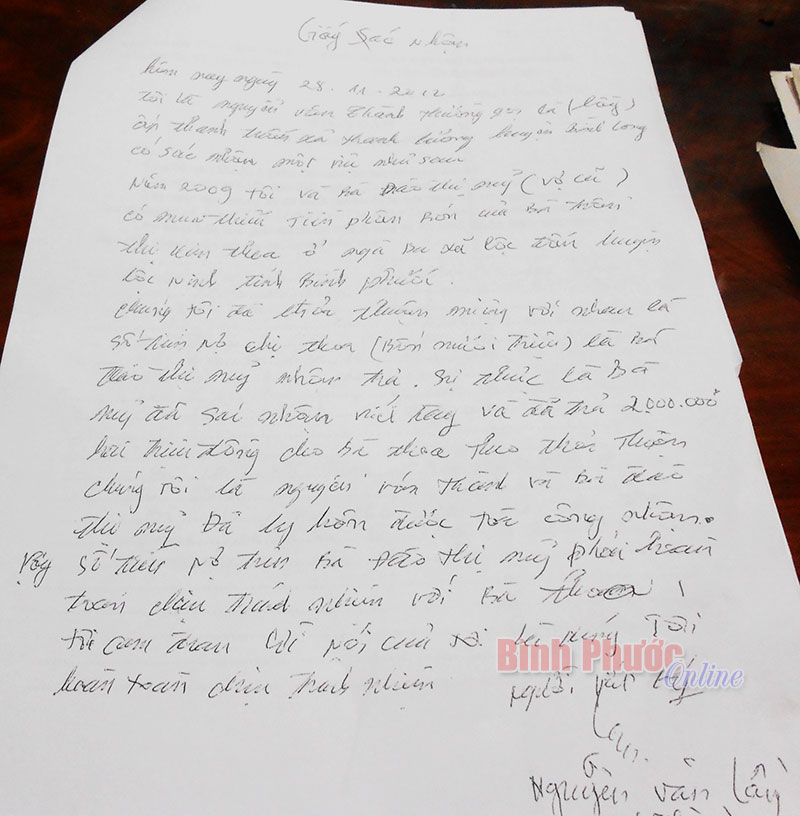 Giấy Sác nhận
hôm nay ngày 28.11.2012
tôi là nguyễn văn Thành thường gọi là (lầy)
ấp thanh tuấn xã thanh lương huyện Bình Long
có sác nhận một việc như sau
Năm 2009 tôi và Bà Đào thị mỹ (vợ cũ)
có mua thiếu tiền phân Bón của Bà Trần
thị kim thoa ở ngã Ba xã lộc tấn huyện
lộc Ninh tỉnh Bình phước.
chúng tôi đã thỏa thuận miệng với nhau là
số tiền nợ chị thoa (Bốn mươi Triệu) là Bà
Đào thị mỹ nhận trả. Sự thực là Bà
mỹ đã sác nhận viết tay và đã trả 2.000.000đ
hai triệu đồng cho Bà thoa theo thỏa thuận
chúng tôi là nguyễn văn Thành và Bà Đào
thị mỹ Đã ly hôn được tòa công nhận.
Vậy số tiền nợ trên Bà Đào thị mỹ phải hoàn
toàn chịu trách nhiệm với Bà thoa
tôi cam đoan lời nói của tôi là đúng Tôi
hoàn toàn chịu trách nhiệm người viết
Bình Phước Online
Nguyễn văn lầy